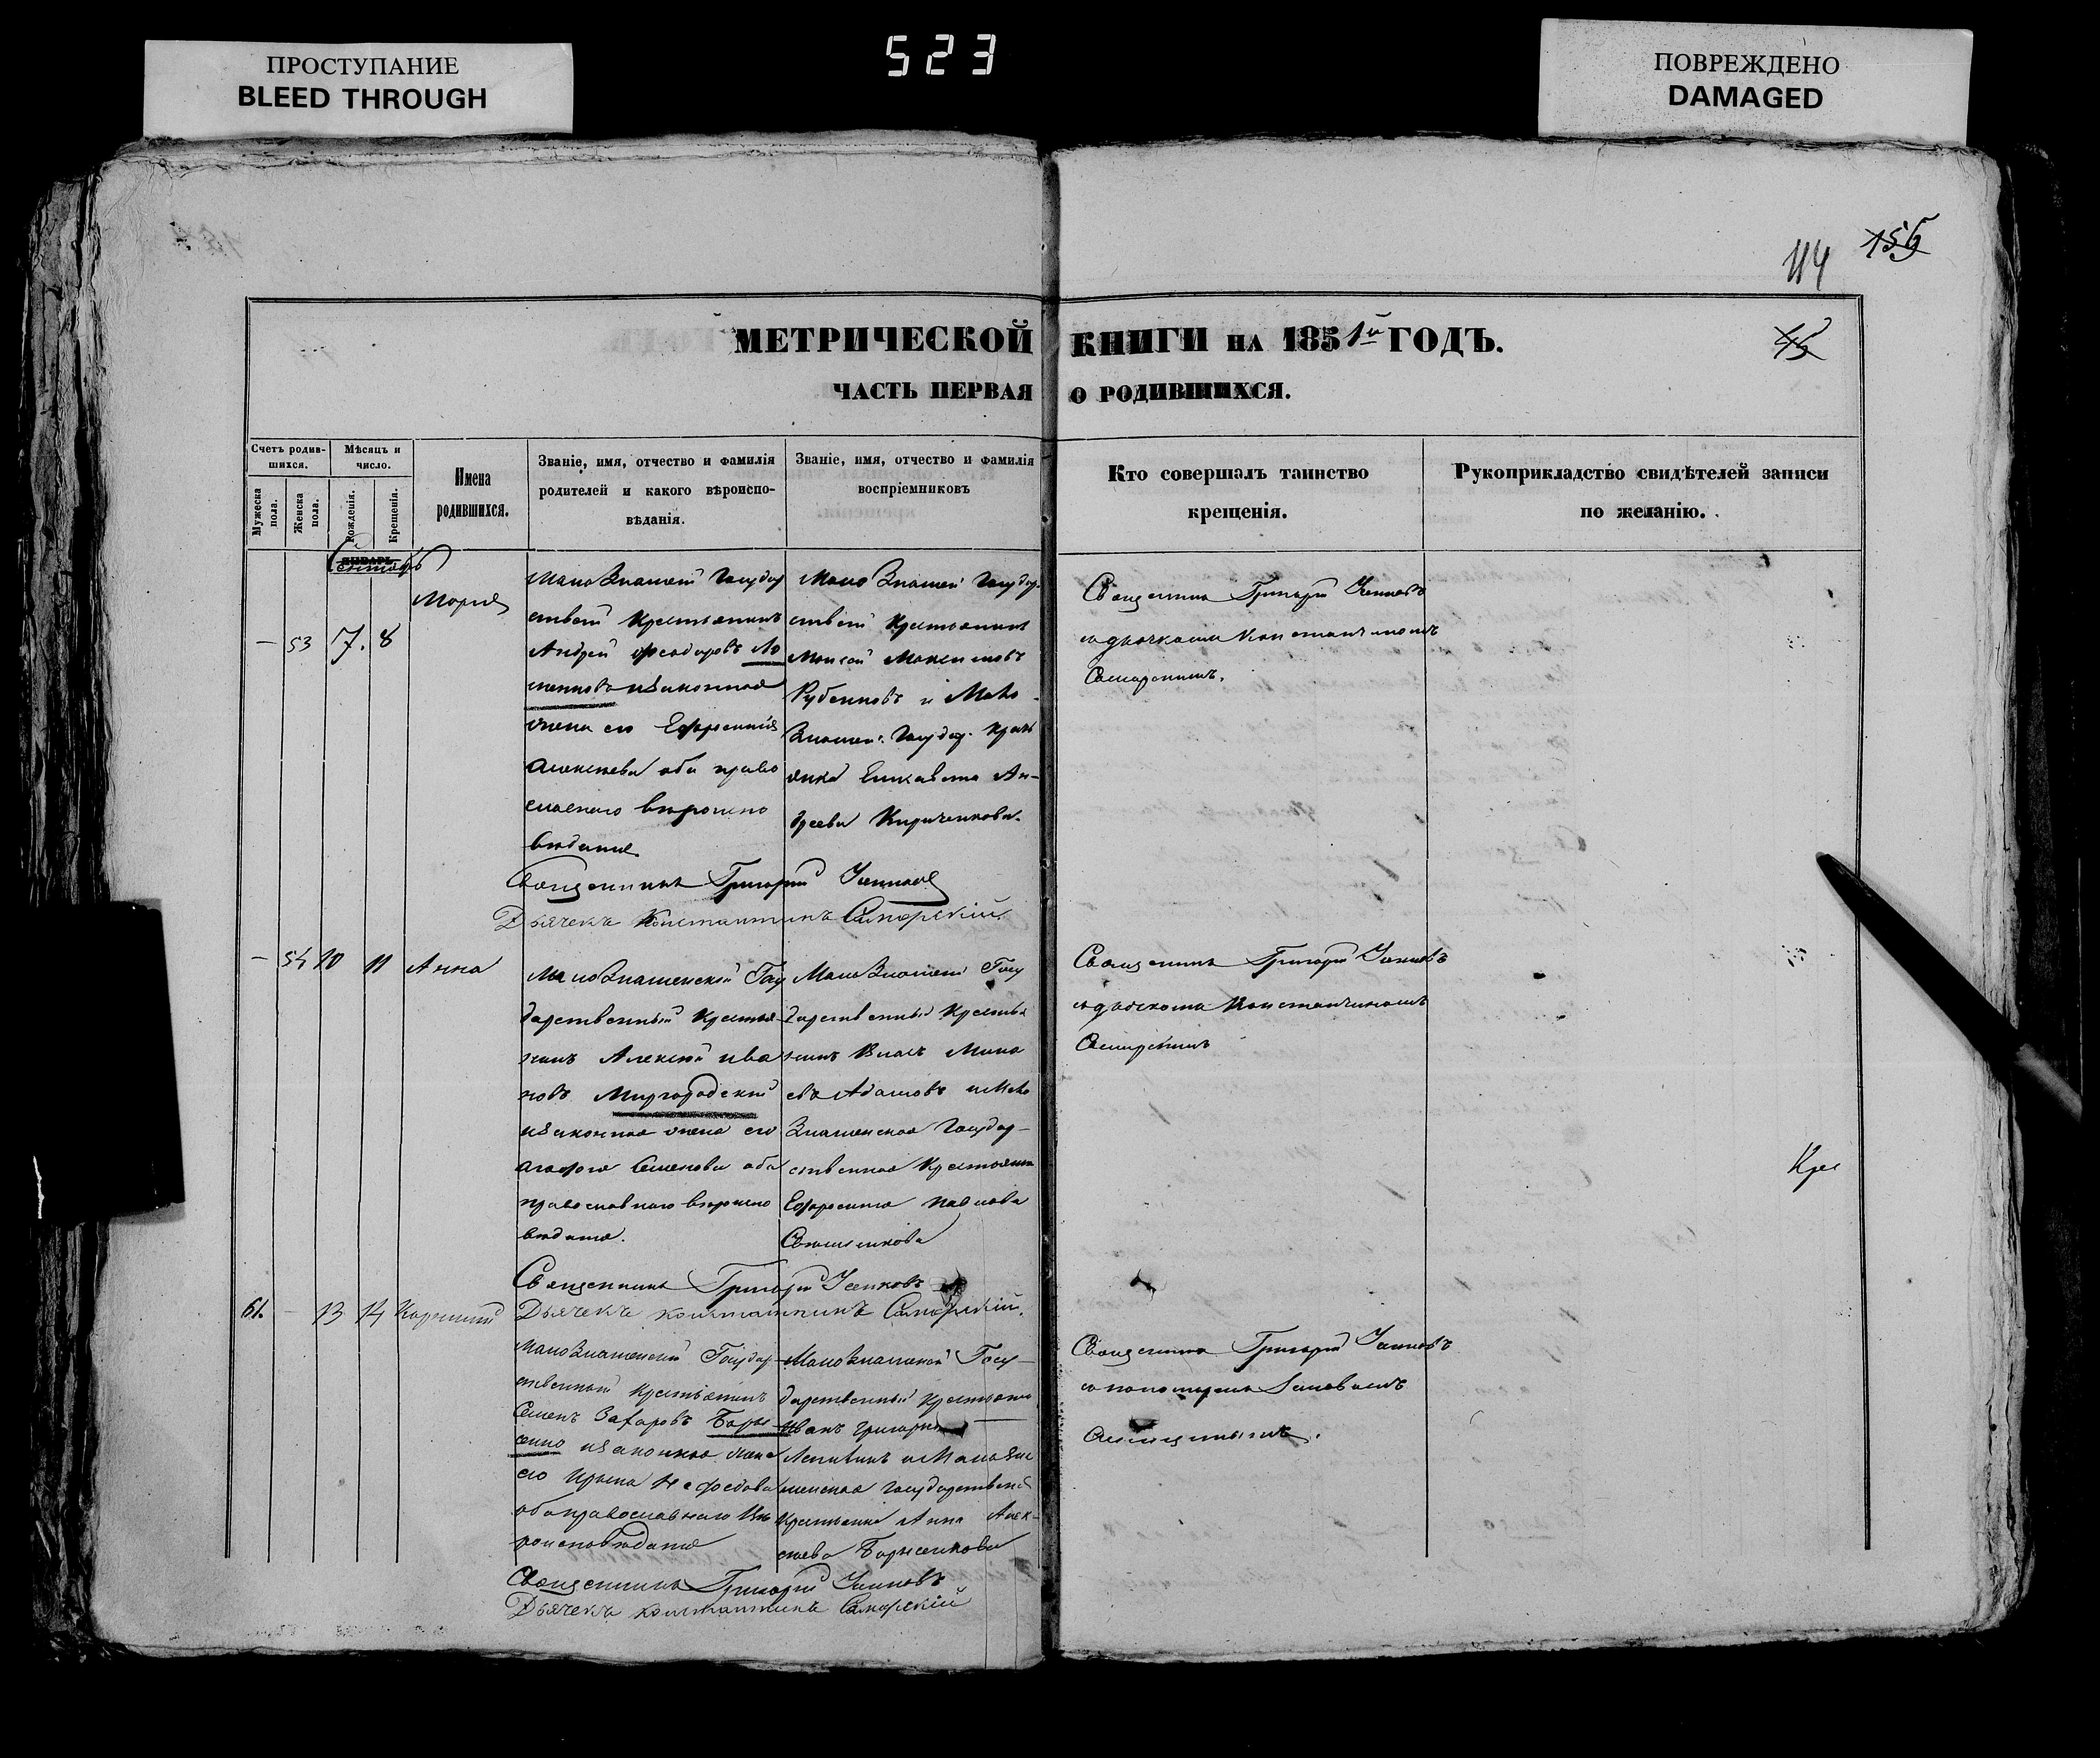 ПРОСТУПАНИЕ
BLEED THROUGH
523
ПОВРЕЖДЕНО
DAMAGED
155
114
45
МЕТРИЧЕСКОЙ КНИГИ НА 1851й ГОДЪ.
ЧАСТЬ ПЕРВАЯ О РОДИВШИХСЯ.
Счетъ родив-
шихся.
Мужеска
пола.
Женска
пола.
Мѣсяцъ и
число.
Рожденія.
Крещенія.
Имена
родившихся.
Званіе, имя, отчество и фамилія
родителей и какого вѣроиспо-
вѣданія.
Званіе, имя, отчество и фамилія
воспріемниковъ
Кто совершалъ таинство
крещенія.
Рукоприкладство свидѣтелей записи
по желанію.
ЯНВАРЬ
Сентябрь
— 53 7. 8
Марія
Мало Знаменй Государ
ственй Крестьянинъ
Андрей Феодоровъ
и законная
жена его Ефросинія
Алексеева оба право
славнаго вѣроиспо
вѣданія
Мало Знаменй Государ-
ственй Крестьянинъ
Моисей Максимовъ
Рубенковъ и Мало
Знамен. Государ. Кресть
янка Елисавета Ан-
дреева Кириченкова.
Священникъ Григорій
съ дьячкомъ Константиномъ
Самарскимъ.
Священникъ Григорій
Дьячекъ Константинъ Самарскій
— 54 10 11 Анна
Мало Знаменскій Госу
дарственный Крестья
нинъ Алексей Ива
новъ Миргородскій
и законная жена его
Агафія Семенова оба
православнаго вѣроиспо
вѣданія.
Мало Знаменй Госу
дарственный Крестья
нинъ Власъ Мина
евъ Адамовъ и Мало
Знаменская Государ-
ственная Крестьянка
Ефросинія Павлова
Священникъ Григорій
съ дьячкомъ Константиномъ
Самарскимъ
Кре
Священникъ Григорій
Дьячекъ Константинъ Самарскій.
61. — 13 14 Корнилій
Мало Знаменскій Государ-
ственный Крестьянинъ
Семенъ Захаровъ Боры
сенко и законная жена
его Ирина Нефедова
оба православнаго вѣ
роисповѣданія
Мало Знаменскій Госу-
дарственный Крестьянинъ
Иванъ Григорьевъ
и Мало Зна
менская Государственная
Крестьянка Анна Алек-
сеева Борысенкова
Священникъ Григорій
съ пономаремъ
Священникъ Григорій
Дьячекъ Константинъ Самарскій